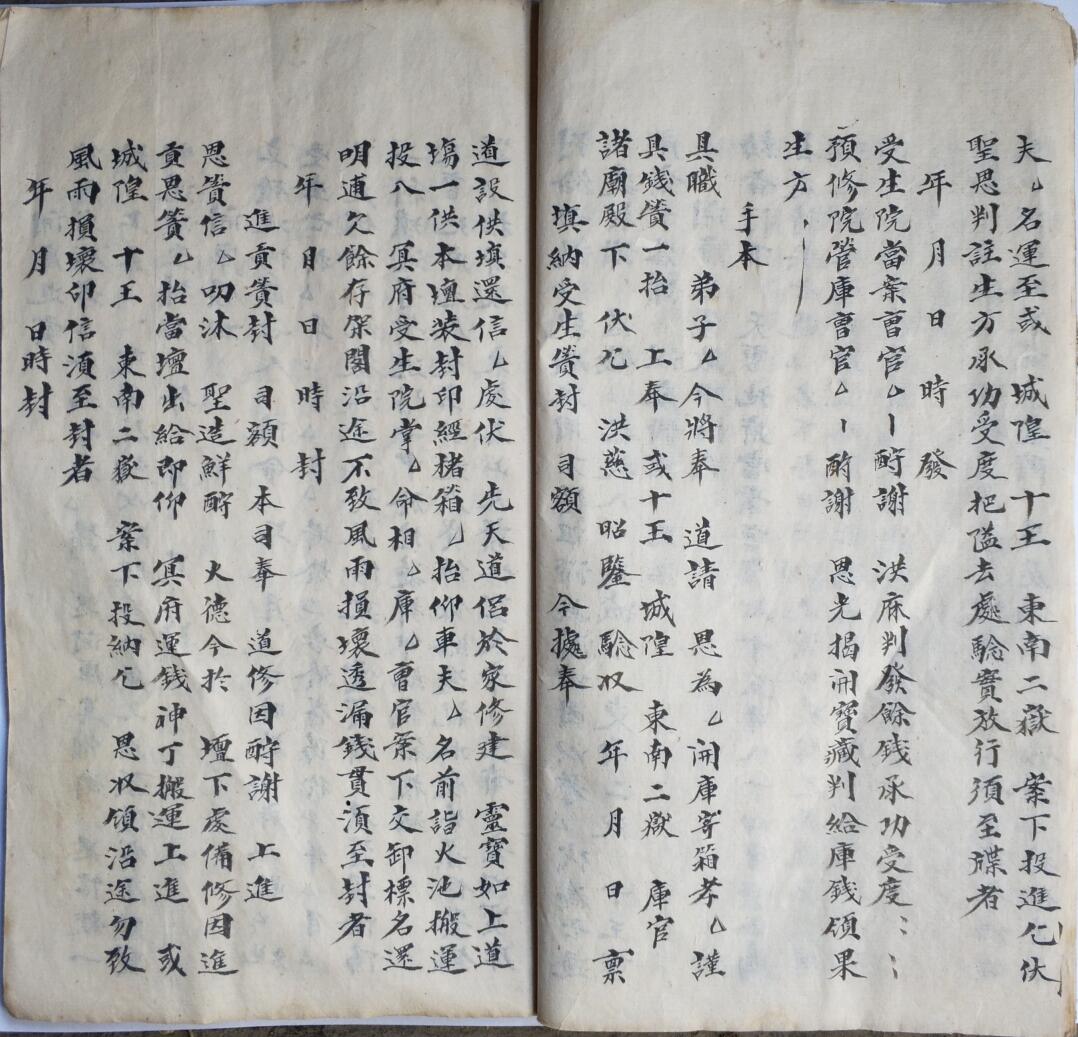 夫厶名運至或 城隍 十王 東南二嶽 案下投進乞伏
聖恩判註生方承功受度把隘去處驗實放行須至牒者
年 月 日 時 發
受生院當案曹官厶 酧謝 洪庥判發餘錢承功受度
預修院管庫曹官厶 酧謝 恩光揭開寶藏判給庫錢領果
生方
手本
具職 弟子厶 今將奉 道請 恩為厶開庫寄箱孝厶謹
具錢賫一抬 上奉或十王 城隍 東南二嶽 庫官
諸廟殿下 伏乞 洪慈 昭鑒驗収 年 月 日 禀
填納受生賫封 司額 今據奉
道設供填還信厶處伏 先天道侶於家修建 靈寶如上道
塲一供本壇装封印經楮箱厶抬仰車夫厶名前詣火池搬運
投入 冥府受生院掌厶命相厶庫厶曹官案下交卸標名還
明逋欠餘存架閣沿途不致風雨損壞透漏錢貫須至封者
年 月 日 時 封
進貢賫封 司額 本司奉 道修因酧謝 上進
恩賫信厶叨沐 聖造鮮酧 大德今於 壇下處備修因進
貢恩賫厶抬當壇出給即仰 冥府運錢神丁搬運上進 或
城隍 十王 東南二嶽 案下投納乞 恩収領沿途勿致
風雨損壞印信須至封者
年 月 日時封